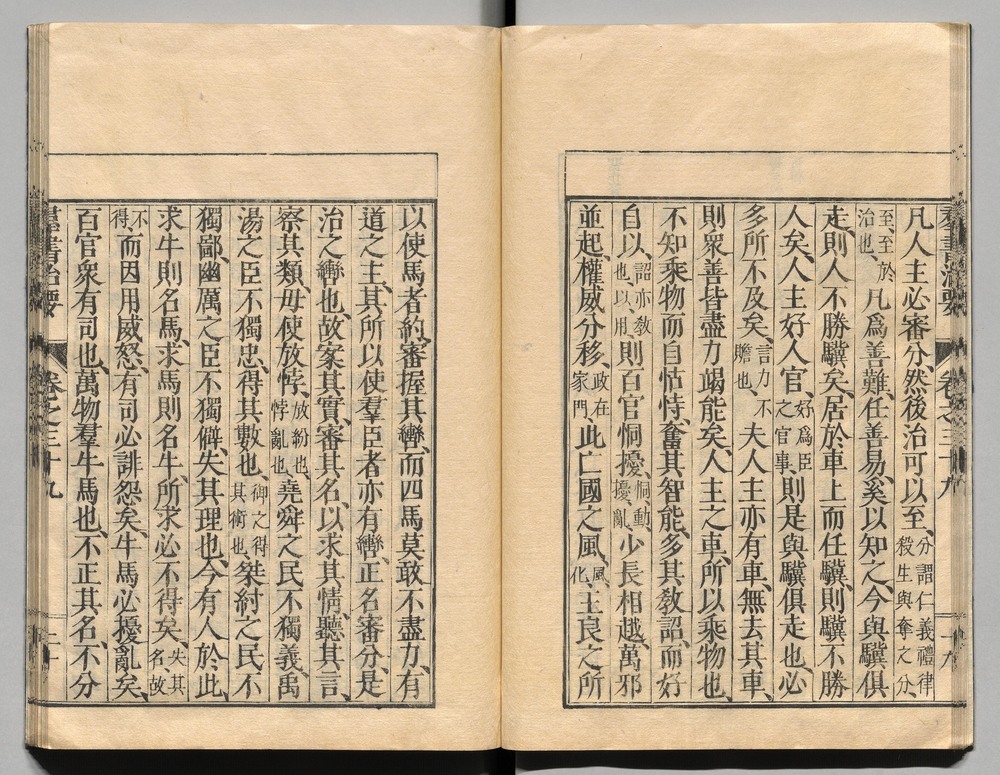 羣書治要 卷之三十九 二十九
凡人主必審分、然後治可以至、分謂仁義禮律殺生與奪之分、
至、至於治也、凡爲善難、任善易、奚以知之、今與驥俱
走、則人不勝驥矣、居於車上而任驥、則驥不勝
人矣、人主好人官、好爲臣之官事、則是與驥俱走也、必
多所不及矣、言力不贍也、夫人主亦有車、無去其車、
則衆善皆盡力竭能矣、人主之車、所以乘物也、
不知乘物而自怙恃、奮其智能、多其敎詔、而好
自以、詔亦敎也、以、用也、則百官恫擾、恫、動、擾、亂、少長相越、萬邪
並起、權威分移、政在家門、此亡國之風、風、化、王良之所
以使馬者約、審握其轡、而四馬莫敢不盡力、有
道之主、其所以使羣臣者亦有轡、正名審分、是
治之轡也、故家其實、審其名、以求其情、聽其言、
察其類、毋使放悖、放、紛也、悖、亂也、堯舜之民不獨義、禹
湯之臣不獨忠、得其數也、御之得其術也、桀紂之民不
獨鄙、幽厲之臣不獨僻、失其理也、今有人於此、
求牛則名馬、求馬則名牛、所求必不得矣、失其名、故
不得、而因用威怒、有司必誹怨矣、牛馬必擾亂矣、
百官衆有司也、萬物羣牛馬也、不正其名、不分
羣書治要 卷之三十九